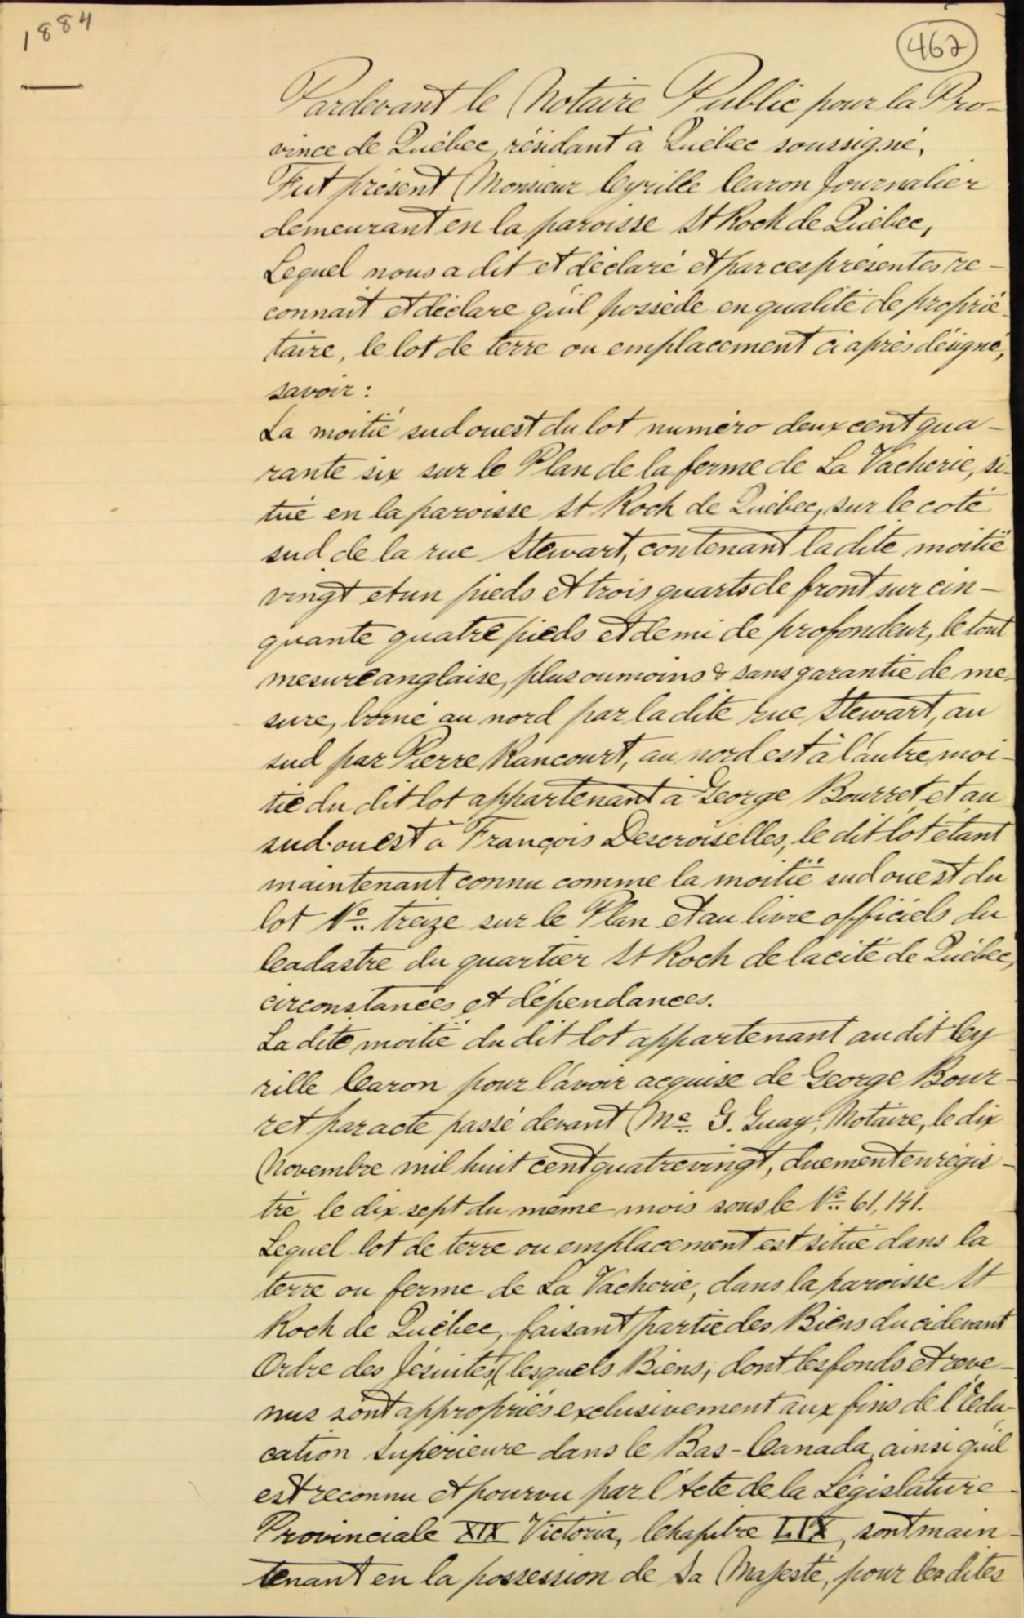 1884
462
Pardevant le Notaire Public pour la Pro-
vince de Québec, résidant à Québec soussigné,
Fut présent Monsieur Cyrille Caron Journalier
demeurant en la paroisse St Roch de Québec,
Lequel nous a dit et déclaré et par ces présentes re-
connait et déclare qu'il possède en qualité de proprié-
taire, le lot de terre ou emplacement ci après désigné,
savoir :
La moitié sud ouest du lot numéro deux cent qua-
rante six sur le Plan de la ferme de La Vacherie, si-
tué en la paroisse St Roch de Québec, sur le coté
sud de la rue Stewart, contenant la dite moitié
vingt et un pieds et trois quarts de front sur cin-
quante quatre pieds et demi de profondeur, le tout
mesure anglaise, plus ou moins & sans garantie de me-
sure, borné au nord par la dite rue Stewart, au
sud par Pierre Rancourt, au nord est à l'autre moi-
tié du dit lot appartenant à George Bourret et au
sud-ouest à François Descroiselles, le dit lot étant
maintenant connu comme la moitié sud ouest du
lot No. treize sur le Plan et au livre officiels du
Cadastre du quartier St Roch de la cité de Québec,
circonstances et dépendances.
La dite moitié du dit lot appartenant au dit Cy
rille Caron pour l'avoir acquise de George Bour-
ret par acte passé devant Me. G. Guay, Notaire, le dix
Novembre mil huit cent quatrevingt, duement enrégis-
tré le dix sept du même mois sous le No. 61,141.
Lequel lot de terre ou emplacement est situé dans la
terre ou ferme de La Vacherie, dans la paroisse St
Roch de Québec, faisant partie des Biens du cidevant
Ordre des Jésuites, (lesquels Biens, dont les fonds et reve-
nus sont appropriés exclusivement aux fins de l'Edu-
cation Supérieure dans le Bas-Canada, ainsi qu'il
est reconnu et pourvu par l'Acte de la Législature
Provinciale XIX Victoria, Chapitre LIX, sont main-
tenant en la possession de Sa Majesté, pour les dites